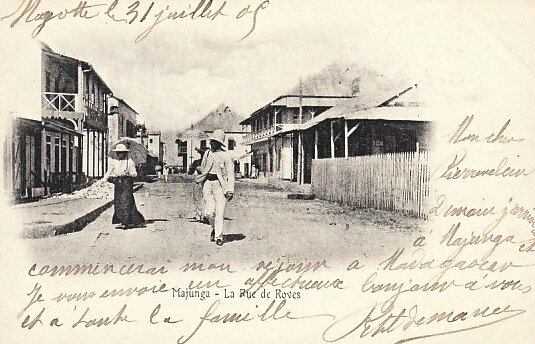 Mayotte le 31 juillet 05
Mon cher
demain j'arrive
à Majunga et
commencerai mon séjour à Madagascar
Je vous envoie un affectueux bonjour à vous
Majunga - La Rue de Roves
et à toute la famille